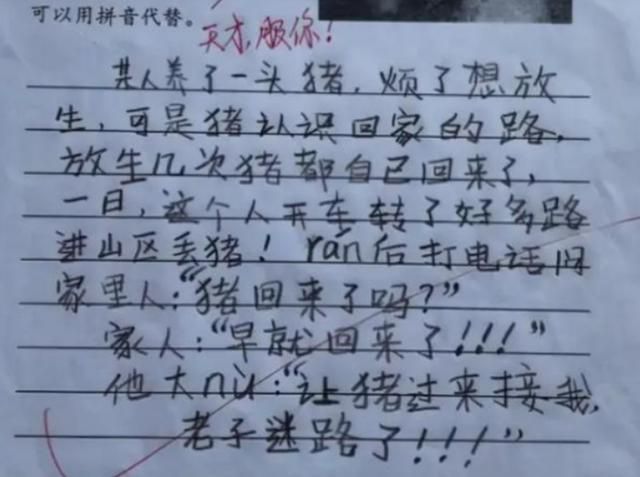 可以用拼音代替。
天才,服你!
某人养了一头猪,烦了想放
生,可是猪认识回家的路,
放生几次猪都自己回来了,
一日,这个人开车转了好多路
进山区丢猪! rán后打电话问
家里人:“猪回来了吗?”
家人:“早就回来了!!!”
他大nù:“让猪过来接我,
老子迷路了!!!”